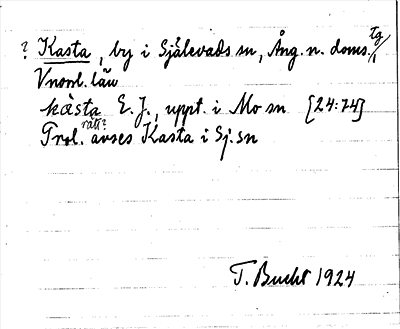 ? Kasta, by i Själevads sn, Ång. n. doms. tg/1
Vnorrl. län
kàsta E. J., uppt. i Mo sn [24:74]
rätt?
Trol. avses Kasta i Sj. sn
T. Bucht 1924